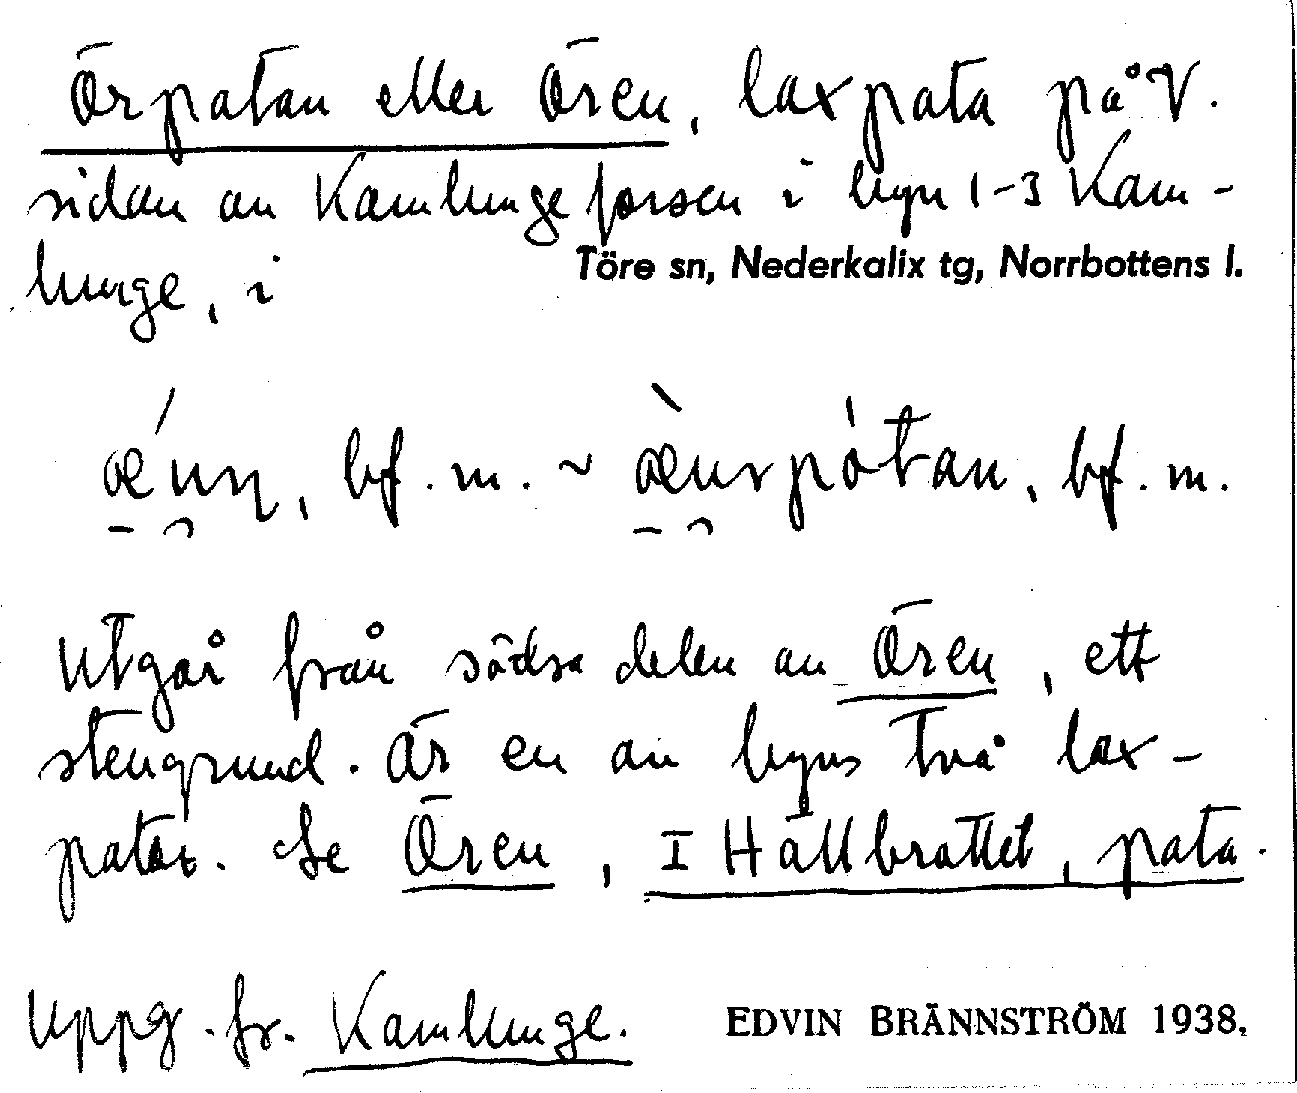 Örpatan eller Ören, laxpata på V.
sidan av Kamlungeforsen i byn 1-3 Kam-
lunge, i Töre sn, Nederkalix tg, Norrbottens l.
bf. m. ~ bf. m.
Utgår från södra delen av Ören, ett
stengrund. Är en av byns två lax-
patar. Se Ören, I Hällbrattet, pata.
Uppg. fr. Kamlunge. EDVIN BRÄNNSTRÖM 1938.